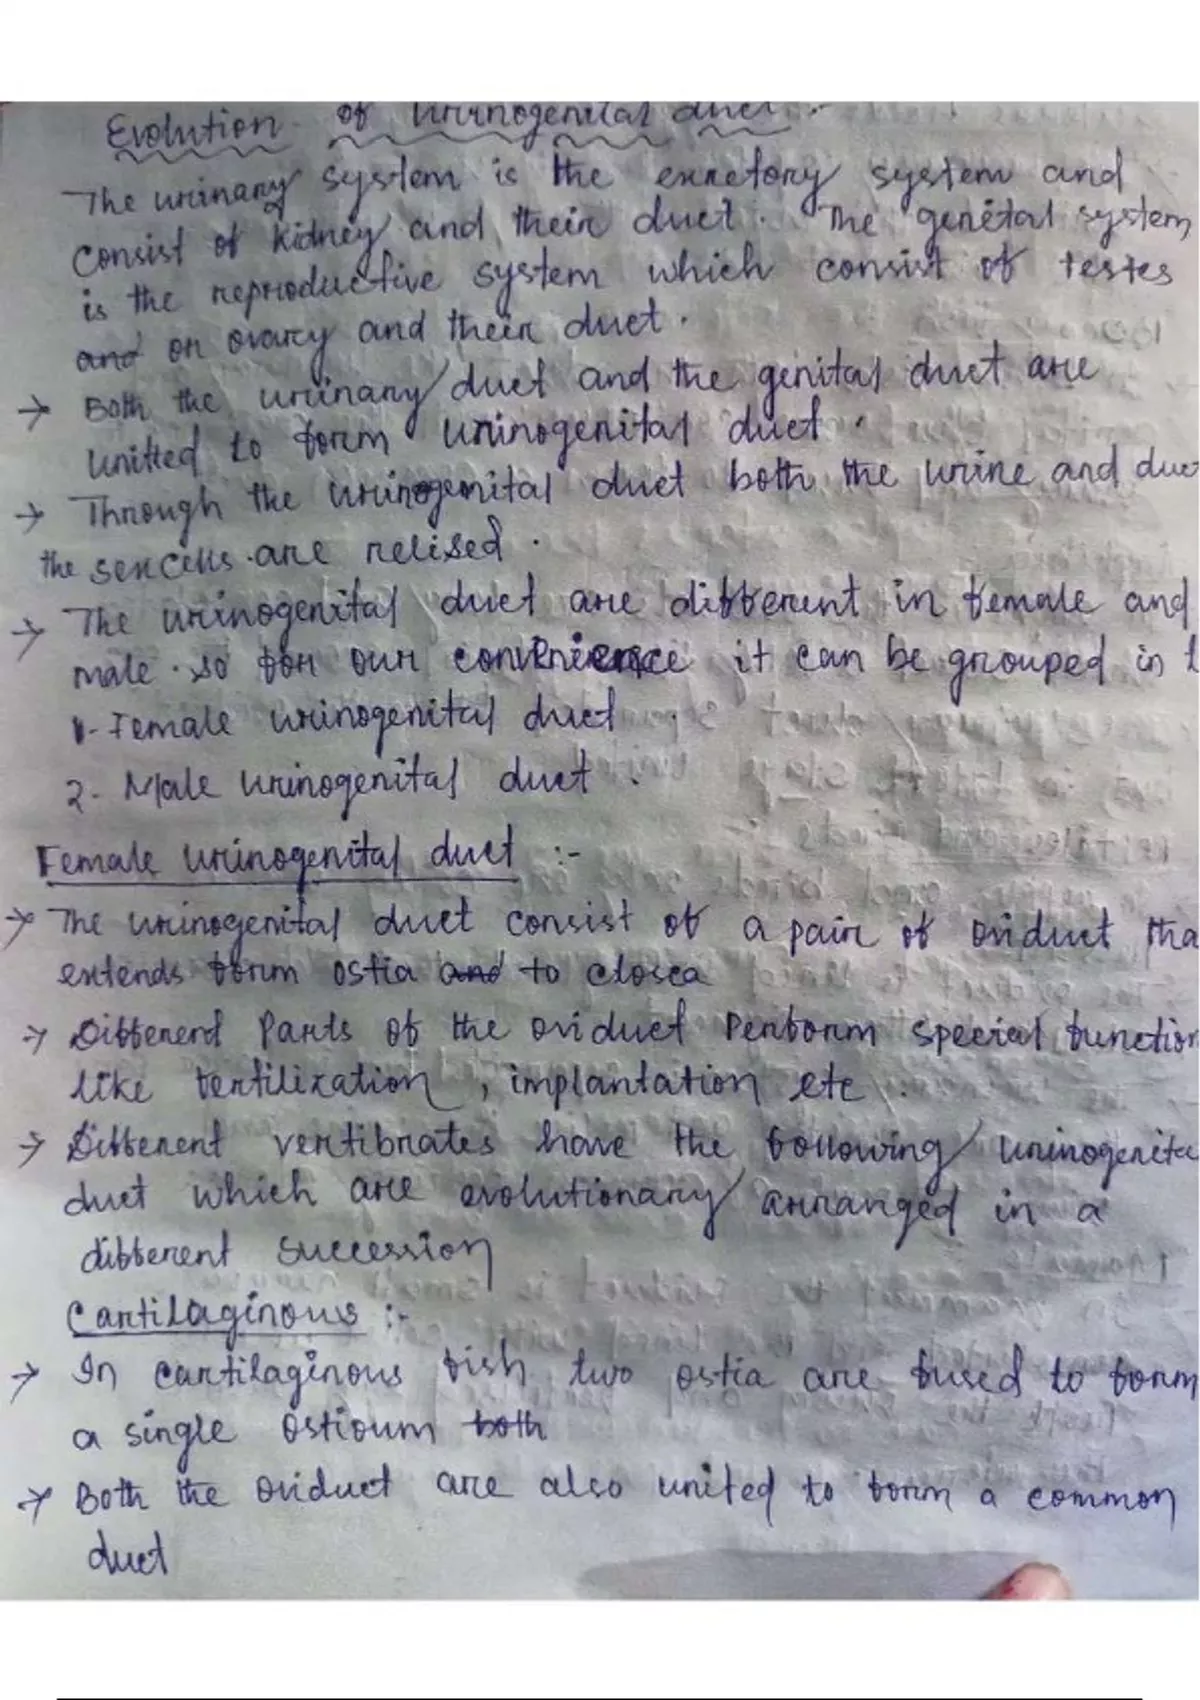 Evolution of Urinogenital duct :-
The urinary system is the excretory system and
consist of kidney and their duct. The genetal system
is the reproductive system which consist of testes
and or ovary and their duct.
→ Both the urinary duct and the genital duct are
unitted to form urinogenital duct.
→ Through the urinogenital duct both the urine and duc
the sexcells are relised.
→ The urinogenital duct are different in female and
male. so for our convenience it can be grouped in t
1- Female urinogenital duct.
2- Male urinogenital duct.
Female urinogenital duct :-
→ The urinogenital duct consist of a pair of oviduct tha
extends form ostia and to closca
→ Differerd parts of the oviduct perform special function
like fertilization, implantation etc.
→ Different vertibrates have the following urinogenita
duct which are evolutionary arranged in a
different succession
Cartilaginous :-
→ In cartilaginous fish two ostia are fused to form
a single ostioum both
→ Both the oviduct are also united to form a common
duct